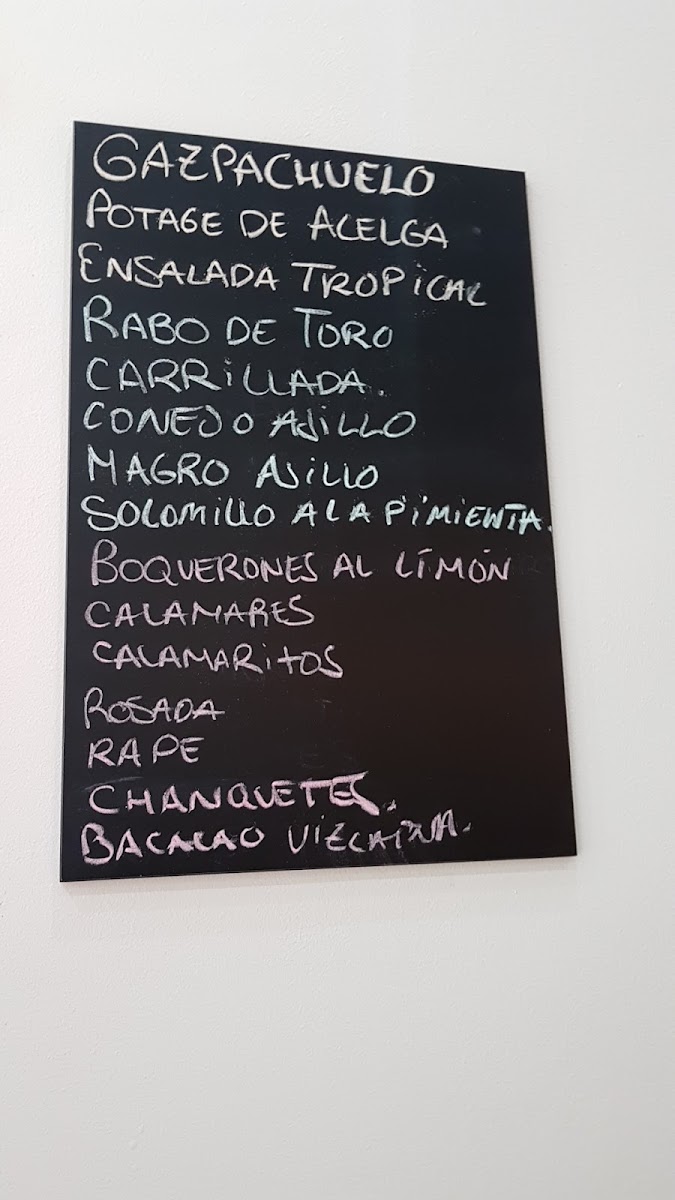 GAZPACHUELO
POTAGE DE ACELGA
ENSALADA TROPICAL
RABO DE TORO
CARRILLADA.
CONEJO AJILLO
MAGRO AJILLO
SOLOMILLO A LA PIMIENTA.
BOQUERONES AL LIMÓN
CALAMARES
CALAMARITOS
ROSADA
RAPE
CHANQUETES.
BACALAO VIZCAINA.